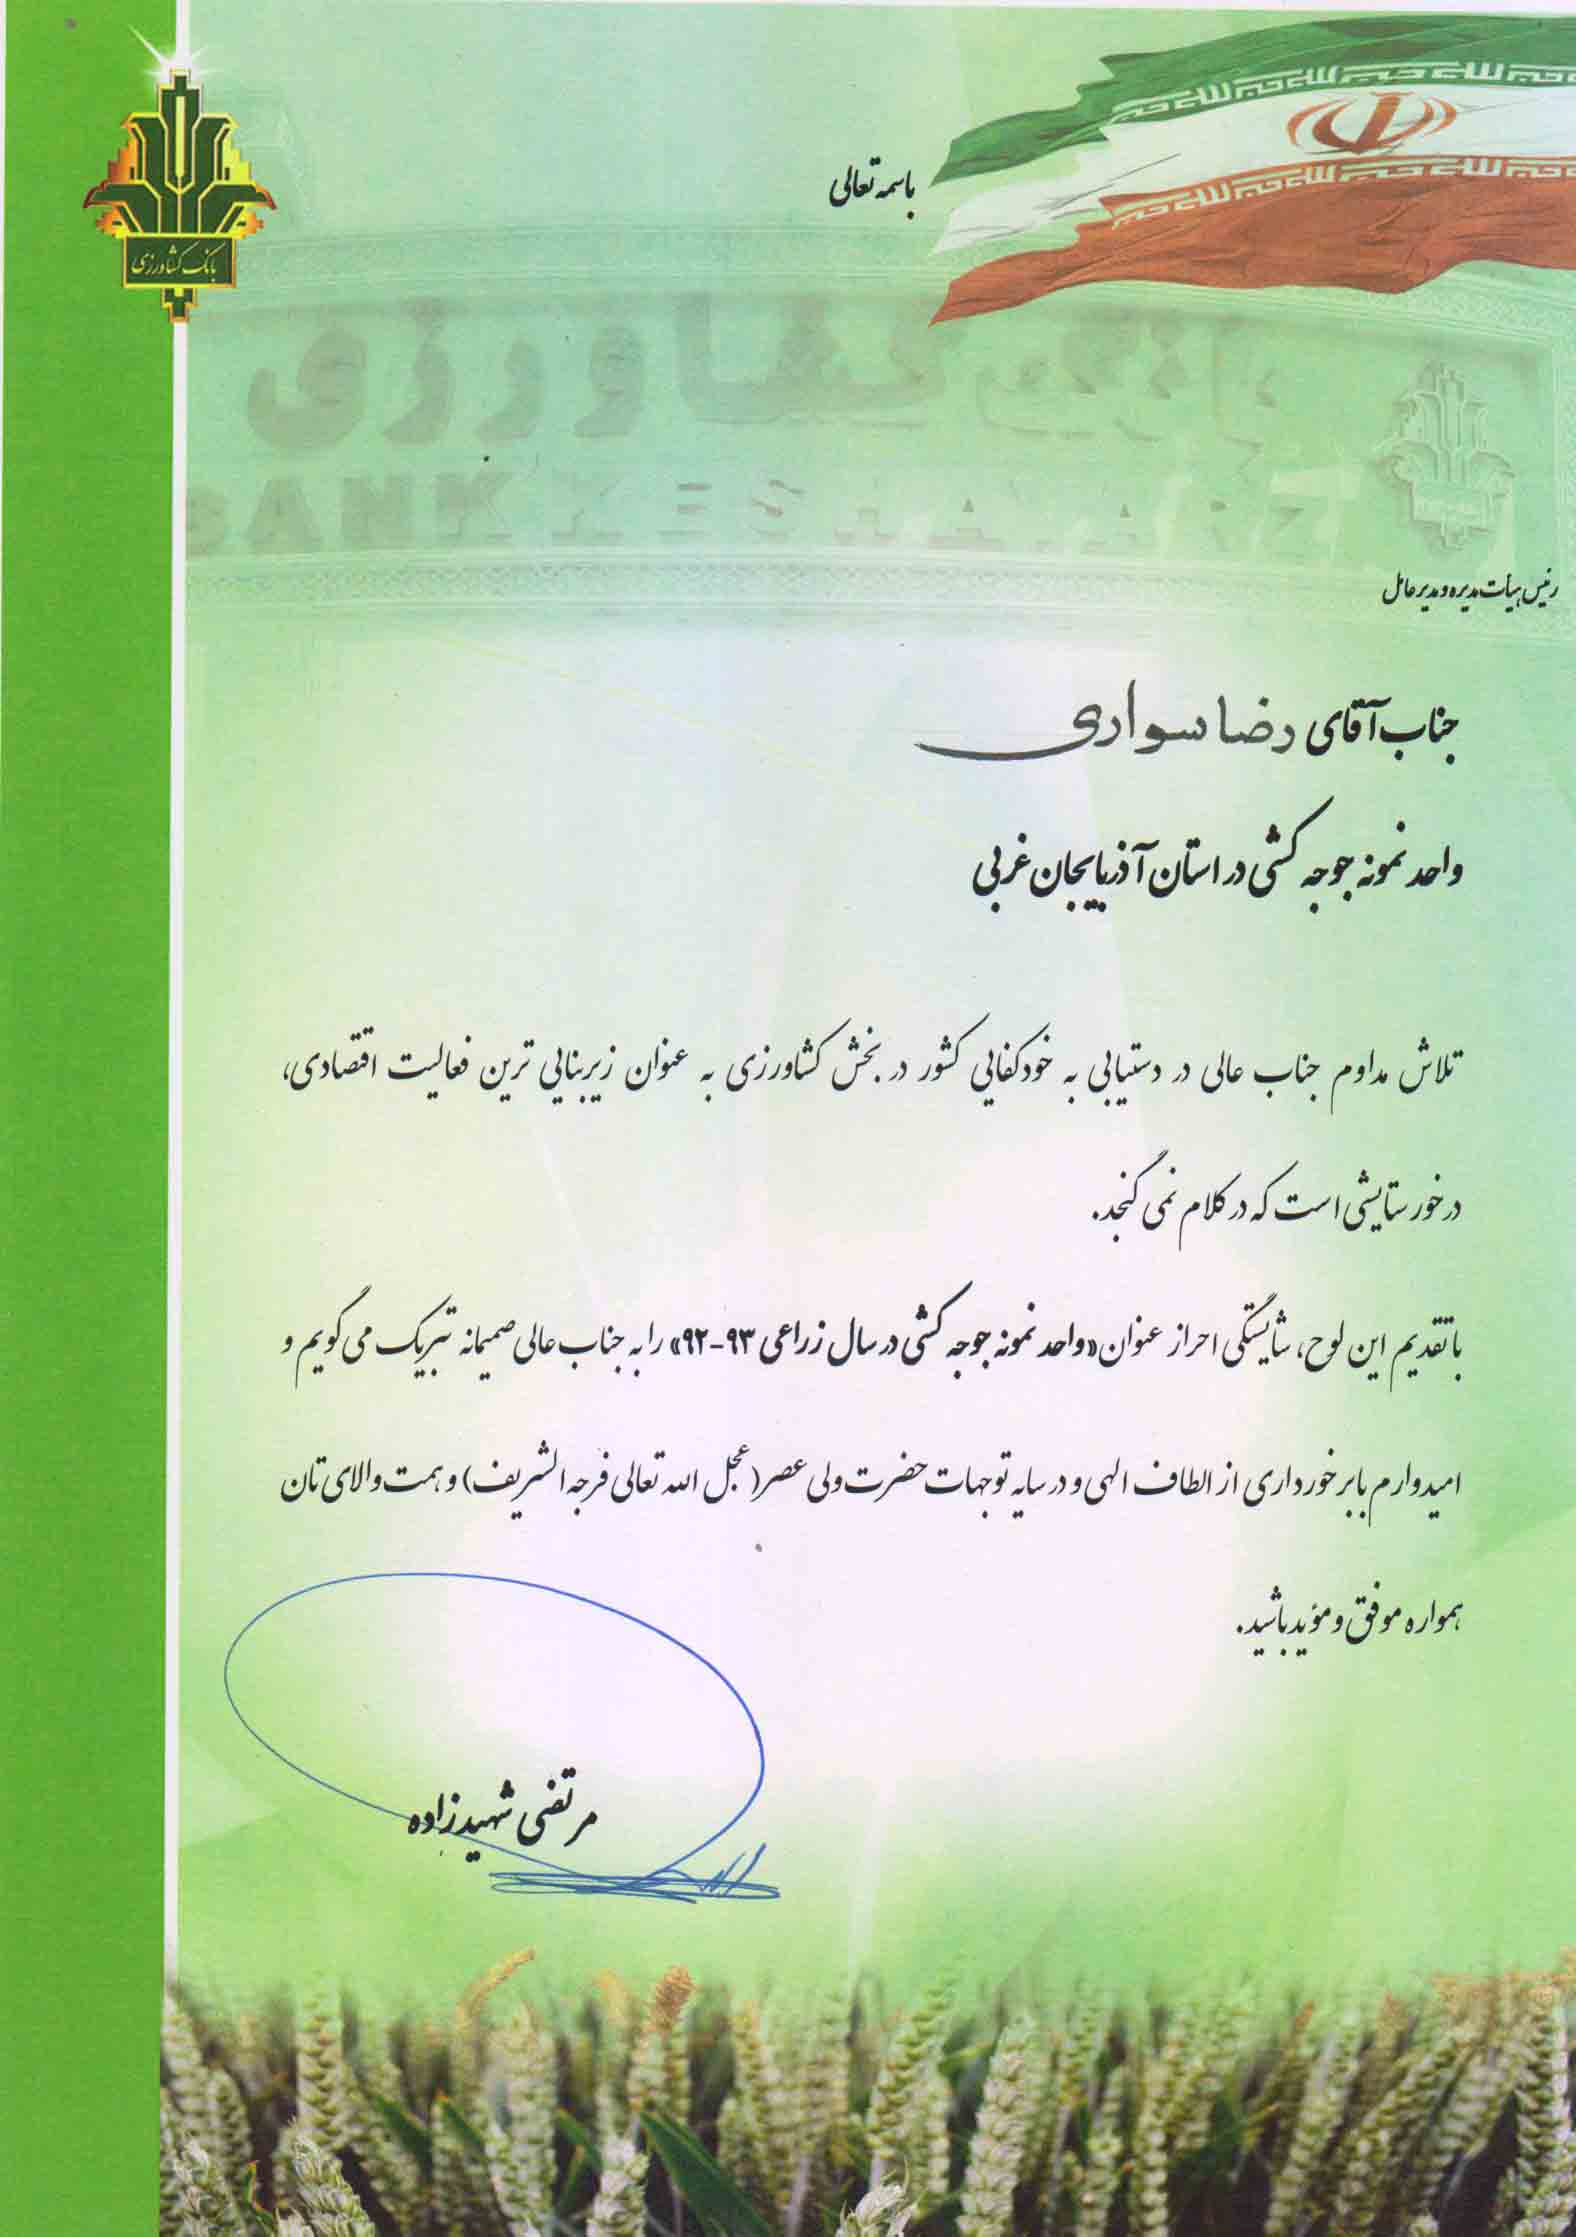 باسمه تعالی
بانک کشاورزی
بانک کشاورزی
BANK KESHAVARZI
رئیس هیأت مدیره و مدیر عامل
جناب آقای رضا سواری
واحد نمونه جوجه کشی در استان آذربایجان غربی
تلاش مداوم جناب عالی در دستیابی به خودکفایی کشور در بخش کشاورزی به عنوان زیربنایی ترین فعالیت اقتصادی،
درخور ستایشی است که در کلام نمی گنجد.
با تقدیم این لوح، شایستگی احراز عنوان «واحد نمونه جوجه کشی در سال زراعی ۹۳-۹۲» را به جناب عالی صمیمانه تبریک می گویم و
امیدوارم با برخورداری از الطاف الهی و در سایه توجهات حضرت ولی عصر (عجل الله تعالی فرجه الشریف) و همت والای تان
همواره موفق و مؤید باشید.
مرتضی شهیدزاده